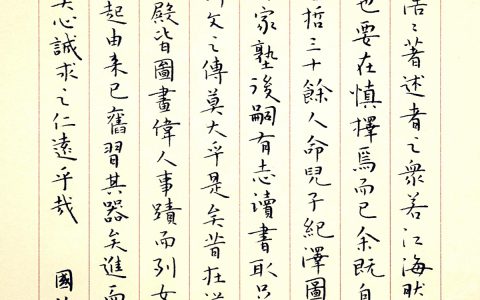 浩々著述者之衆若江海然
也要在慎擇焉而已余既自
哲三十餘人命兒子紀澤圖
家塾後嗣有志讀書取
斯文之傳莫大乎是矣昔在
殿皆圖畫偉人事蹟而列女
起由来已舊習其器矣進而
莫心誠求之仁遠乎哉 國